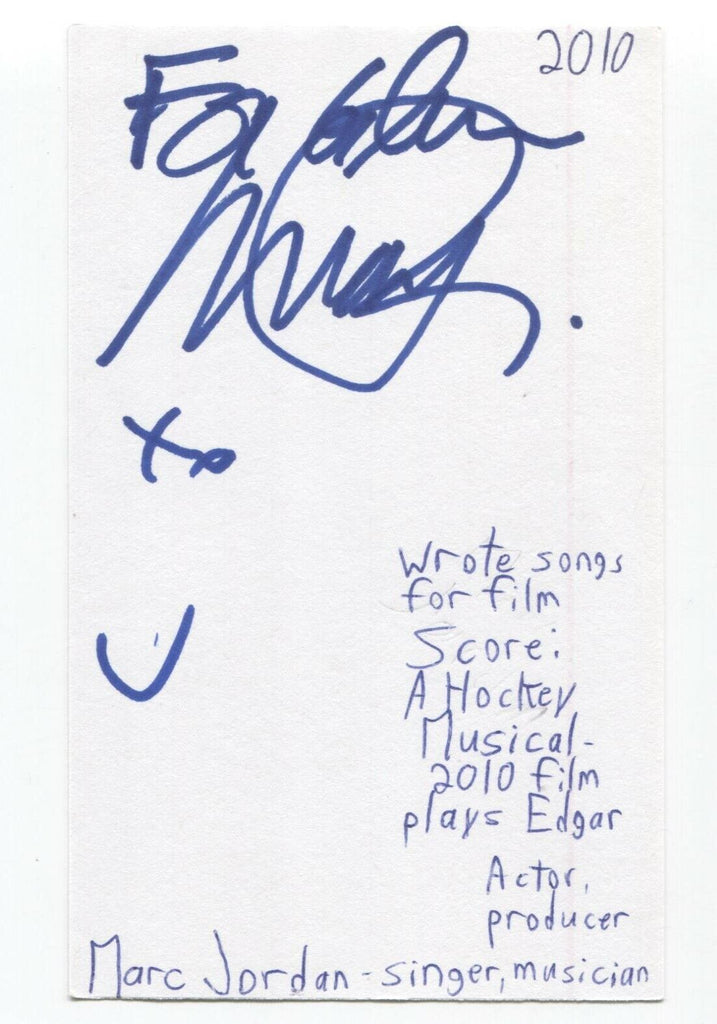 2010
For
Marc
xo
Wrote songs
for film
Score:
A Hockey
Musical-
2010 film
plays Edgar
Actor,
producer
Marc Jordan - singer, musician